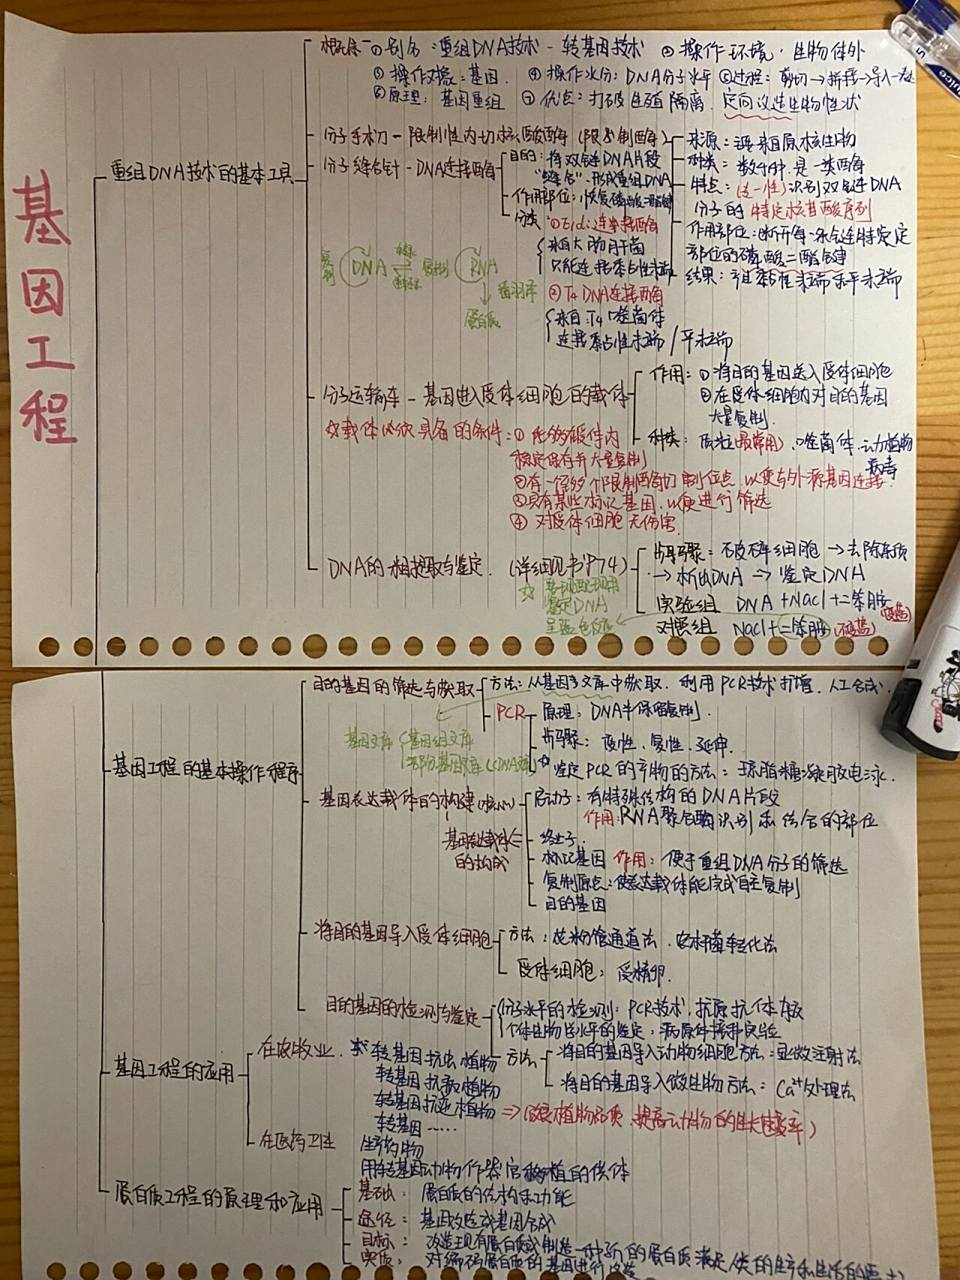 基因工程
概念 ①别名：重组DNA技术 - 转基因技术 ②操作环境：生物体外
③操作对象：基因. ④操作水分：DNA分子水平 ⑤过程：剪切→拼接→导入→表达
⑥原理：基因重组 ⑦优点：打破生殖隔离. 定向改造生物性状
重组DNA技术的基本工具
分子手术刀 - 限制性内切核酸酶 (限制酶)
来源：主要来自原核生物
种类：数千种. 是一类酶
特点：(专一性) 识别双链DNA
分子的特定核苷酸序列
作用部位：断开每一条链特定
部位的磷酸二酯键
结果：产生黏性末端或平末端
分子缝合针 - DNA连接酶
目的：将双链DNA片段
"缝合". 形成重组DNA
作用部位：恢复磷酸二酯键
分类 ①E.coli连接酶
来自大肠杆菌
只能连接黏性末端
②T4 DNA连接酶
来自T4噬菌体
连接黏性末端/平末端
DNA 转录 RNA
翻译
蛋白质
分子运输车 - 基因进入受体细胞的载体
作用：①将目的基因送入受体细胞
②在受体细胞内对目的基因
大量复制.
种类：质粒(最常用). 噬菌体. 动植物
病毒
☆载体必须具备的条件：①能够在宿体内
稳定保存并大量复制
②有一至多个限制酶切割位点，以便与外源基因连接.
③具有某些标记基因，以便进行筛选
④对受体细胞无伤害.
DNA的粗提取与鉴定. (详细见书P74)
步骤：破碎细胞→去除杂质
→析出DNA→鉴定DNA
实验组 DNA+NaCl+二苯胺 (变蓝)
对照组 NaCl+二苯胺 (不变蓝)
☆
鉴定DNA
呈蓝色反应
基因工程的基本操作程序
目的基因的筛选与获取
方法：从基因文库中获取. 利用PCR技术扩增. 人工合成.
PCR 原理：DNA半保留复制.
步骤：变性. 复性. 延伸.
☆鉴定PCR的产物的方法：琼脂糖凝胶电泳.
基因文库 基因组文库
部分基因文库(cDNA文库)
基因表达载体的构建(核心)
启动子：有特殊结构的DNA片段
作用：RNA聚合酶识别和结合的部位
基因表达载体
的构成
终止子.
标记基因 作用：便于重组DNA分子的筛选
复制原点：使表达载体能完成自主复制
目的基因
将目的基因导入受体细胞
方法：花粉管通道法. 农杆菌转化法
受体细胞：受精卵.
目的基因的检测与鉴定
分子水平的检测：PCR技术. 抗原抗体杂交
个体生物学水平的鉴定：病原体接种实验
基因工程的应用
在农牧业. 转基因抗虫植物
转基因抗病植物
转基因抗逆植物
转基因……
方法 将目的基因导入动物细胞方法：显微注射法
将目的基因导入微生物方法：Ca²⁺处理法
⇒(改良植物品质. 提高动物的生长速率)
在医药卫生 生产药物
用转基因动物作器官移植的供体
蛋白质工程的原理和应用
基础：蛋白质的结构和功能
途径：基因改造或基因合成
目标：改造现有蛋白质或制造一种新的蛋白质满足人类的生产和生活的需求
实质：对编码蛋白质的基因进行改造